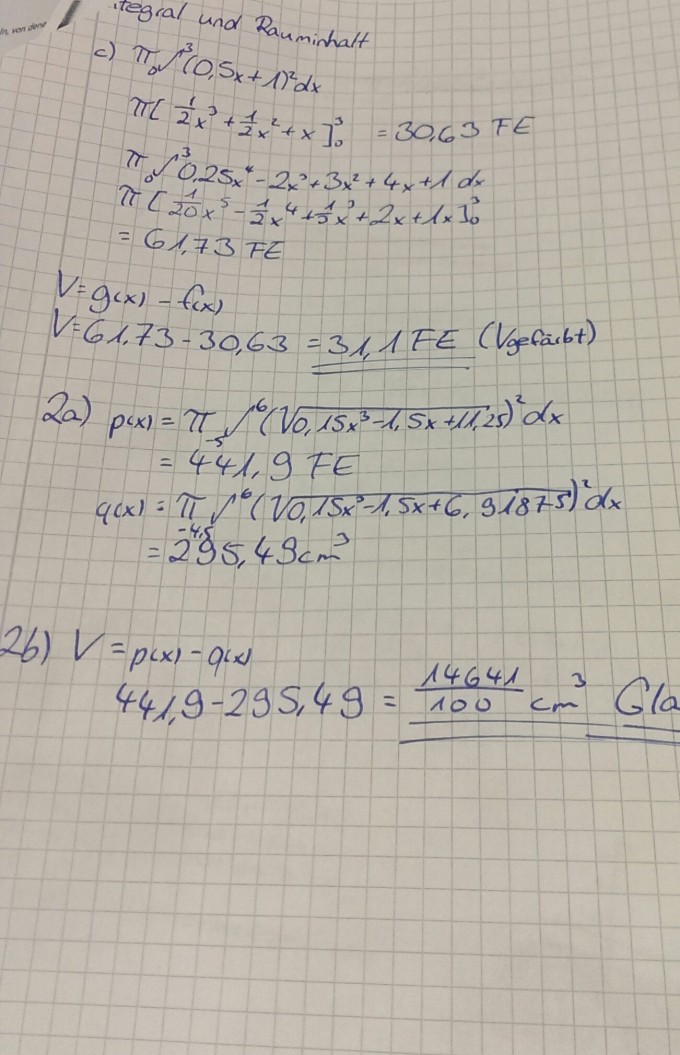 ln, von dene
tegral und Rauminhalt
c) π ₀∫³(0,5x+1)²dx
π[½x³+½x²+x]₀³ = 30,63 FE
π ₀∫³0,25x⁴-2x³+3x²+4x+1 dx
π[1/20x⁵-½x⁴+⅓x³+2x+1x]₀³
= 61,73 FE
V=g(x)-f(x)
V=61,73-30,63 = 31,1 FE (Vgefärbt)
2a) p(x) = π ₋₅∫⁶(√0,15x³-1,5x+11,25)²dx
= 441,9 FE
q(x) = π ₋₄,₅∫⁶(√0,15x³-1,5x+6,91875)²dx
= 295,49cm³
2b) V = p(x)-q(x)
441,9-295,49 = 14641/100 cm³ Gla